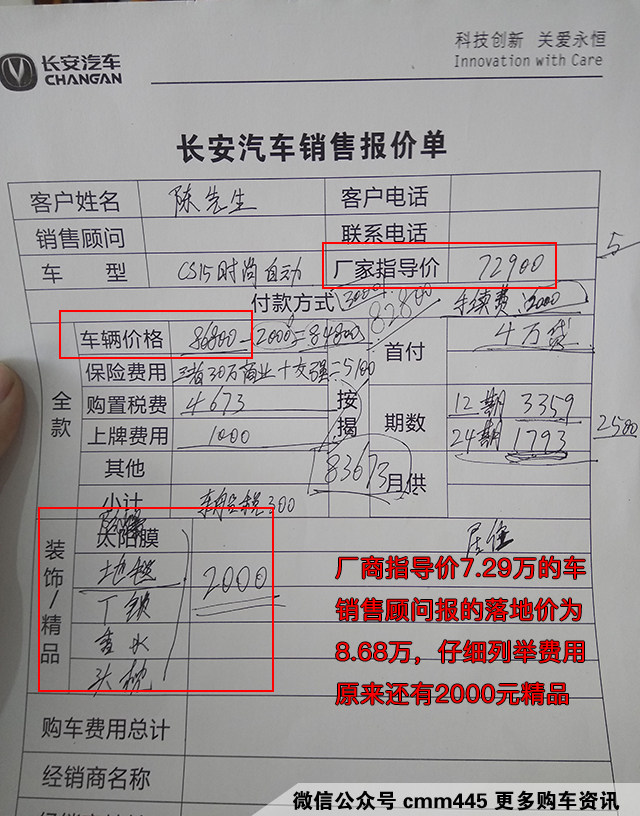 长安汽车
CHANGAN
科技创新 关爱永恒
Innovation with Care
长安汽车销售报价单
客户姓名 陈先生 客户电话
销售顾问 联系电话
车型 CS15时尚自动 厂家指导价 72900 5
付款方式 3000 82800 手续费 2000
全款 车辆价格 86800-2000=84800 按揭 首付 4万贷
保险费用 三者30万商业+交强=5100
购置税费 4673 期数 12期 3359
上牌费用 1000 24期 1793 2580
其他 83673 月供
小计 车船税300
装饰/精品 太阳膜 2000
地毯
丁锁
香水
头枕
厂商指导价7.29万的车
销售顾问报的落地价为
8.68万，仔细列举费用
原来还有2000元精品
购车费用总计
经销商名称
微信公众号 cmm445 更多购车资讯